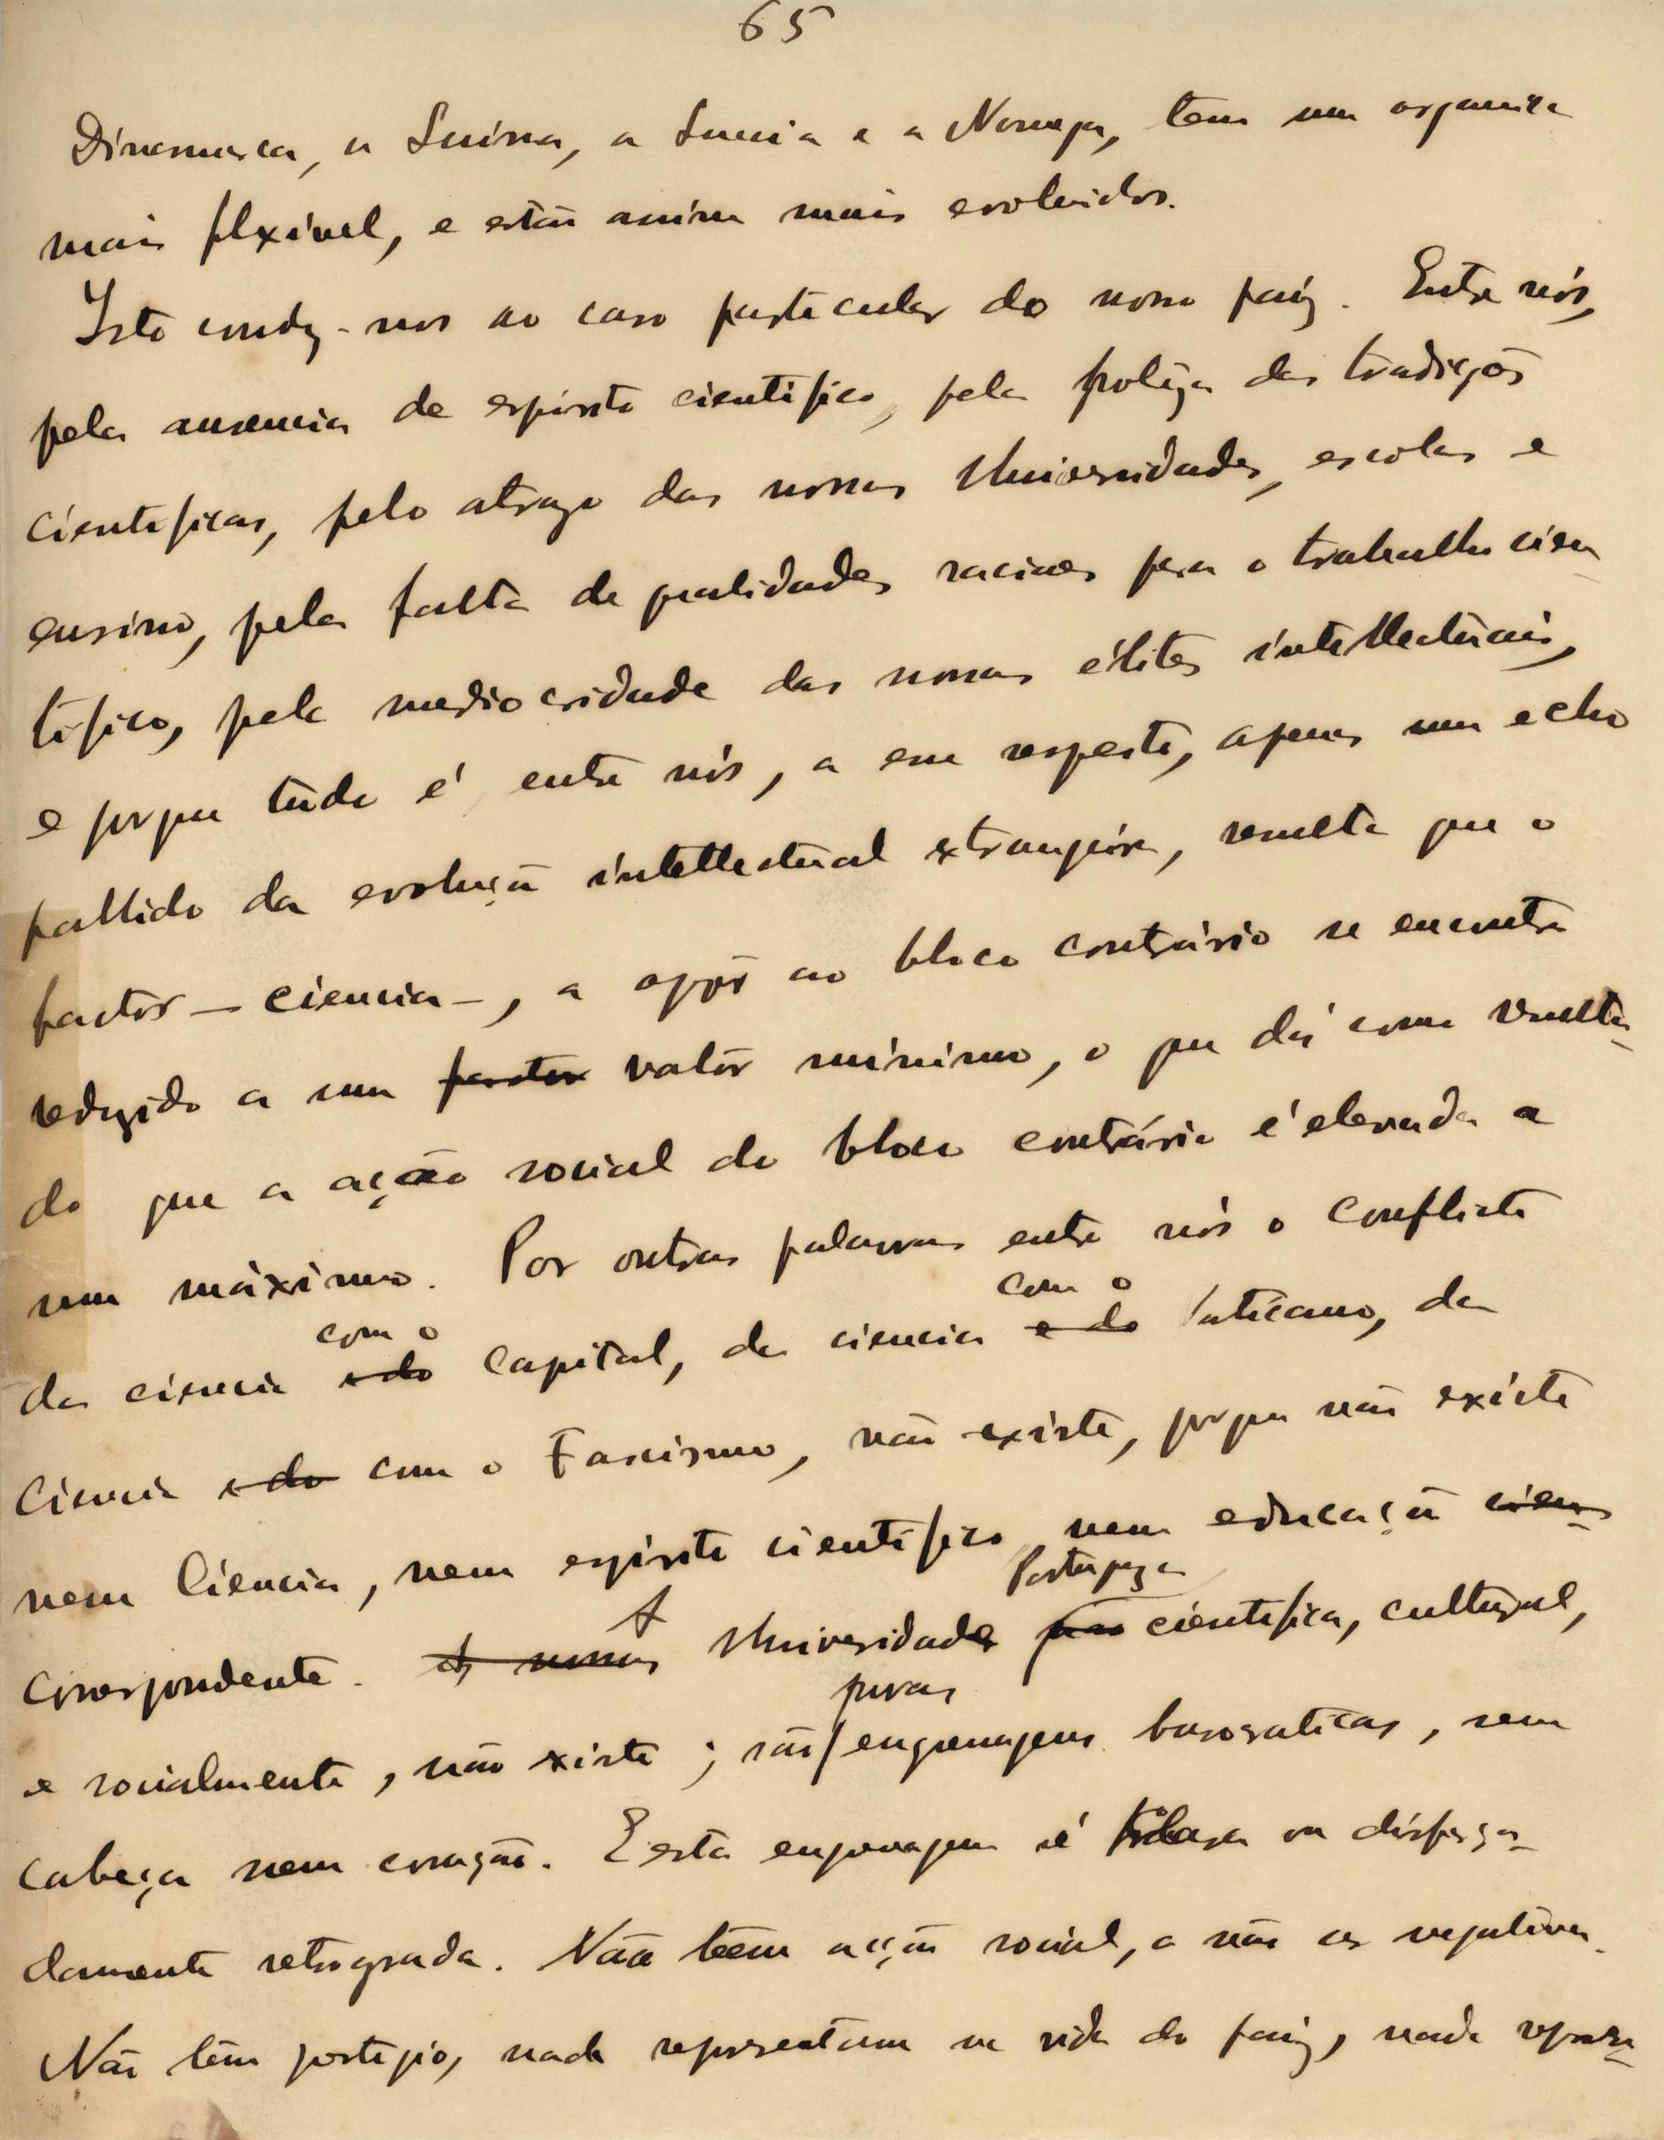 65
Dinamarca, a Suissa, a Suecia e a Noruega, tem um organica
mais flexivel, e estão assim mais evoluidos.
Isto conduz-nos ao caso particular do nosso paiz. Entre nós,
pela ausencia de espirito cientifico, pela pobreza das tradições
cientificas, pelo atrazo das nossas Universidades, escolas e
ensino, pela falta de qualidades raciaes para o trabalho cien
tifico, pela mediocridade das nossas élites intellectuais,
e porque tudo é entre nós, a esse respeito, apenas um echo
pallido da evolução intellectual extrangeira, resulta que o
factor - ciencia -, a opôr ao bloco contrário se encontra
reduzido a um factor valôr minimo, o que dá como resulta-
do que a acção social do bloco contrário é elevada a
um máximo. Por outras palavras entre nós o conflicto
com o
com o
da ciencia e do capital, da ciencia e do Vaticano, da
Ciencia e do com o Fascismo, não existe, porque não existe
nem Ciencia, nem espirito cientifico, nem educação cien-
Portugueza
correspondente. As nossas A Universidade scientifica, cultural,
puras
e socialmente, não existe; são engrenagens burocraticas, sem
cabeça nem coração. E esta engrenagem é ou disfarça-
damente retrograda. Não têem acção social, a não ser negativa.
Não têm prestigio, nada representam na vida do paiz, nada repres-